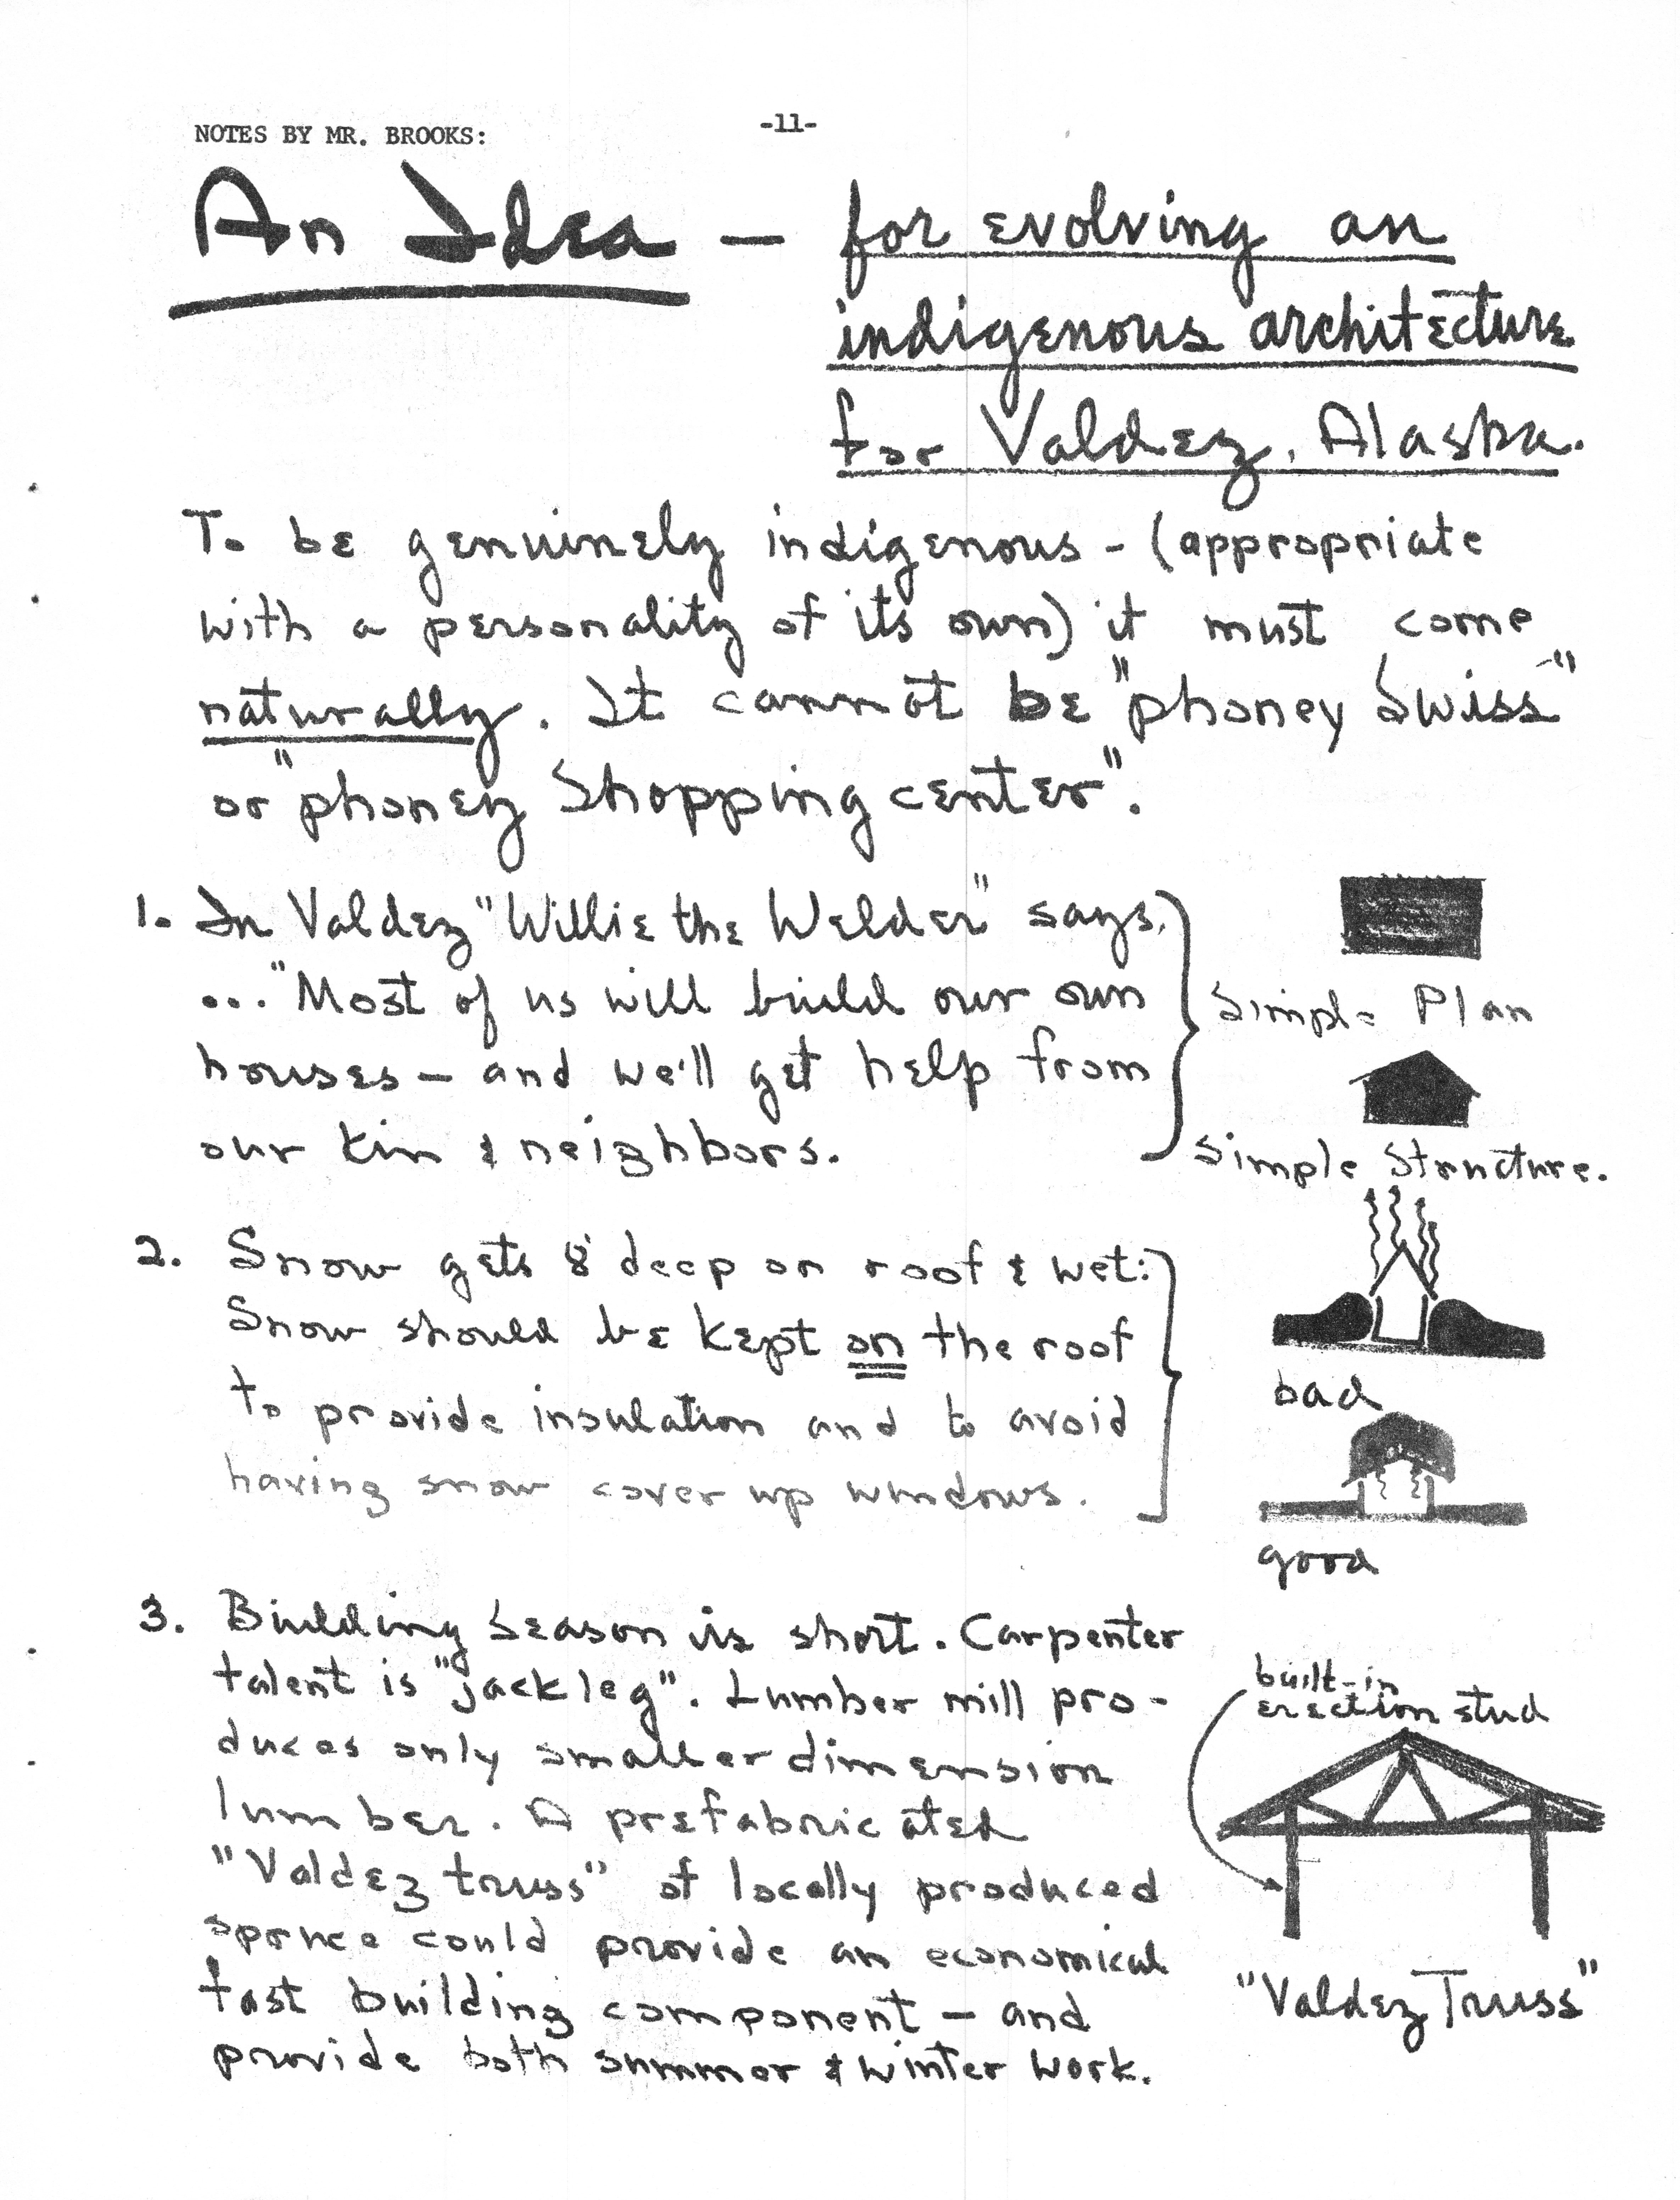 NOTES BY MR. BROOKS:
-11-
An Idea — for evolving an
indigenous architecture
for Valdez, Alaska.
To be genuinely indigenous - (appropriate
with a personality of its own) it must come
naturally. It cannot be "phoney Swiss"
or "phoney Shopping center".
1. In Valdez "Willie the Welder" says,
..."Most of us will build our own
houses — and we'll get help from
our kin & neighbors.
Simple Plan
Simple Structure.
2. Snow gets 8' deep on roof & wet:
Snow should be kept on the roof
to provide insulation and to avoid
having snow cover up windows.
bad
good
3. Building Season is short. Carpenter
talent is "jackleg". Lumber mill pro-
duces only smaller dimension
lumber. A prefabricated
"Valdez truss" of locally produced
spruce could provide an economical
fast building component — and
provide both summer & winter work.
built-in
erection stud
"Valdez Truss"